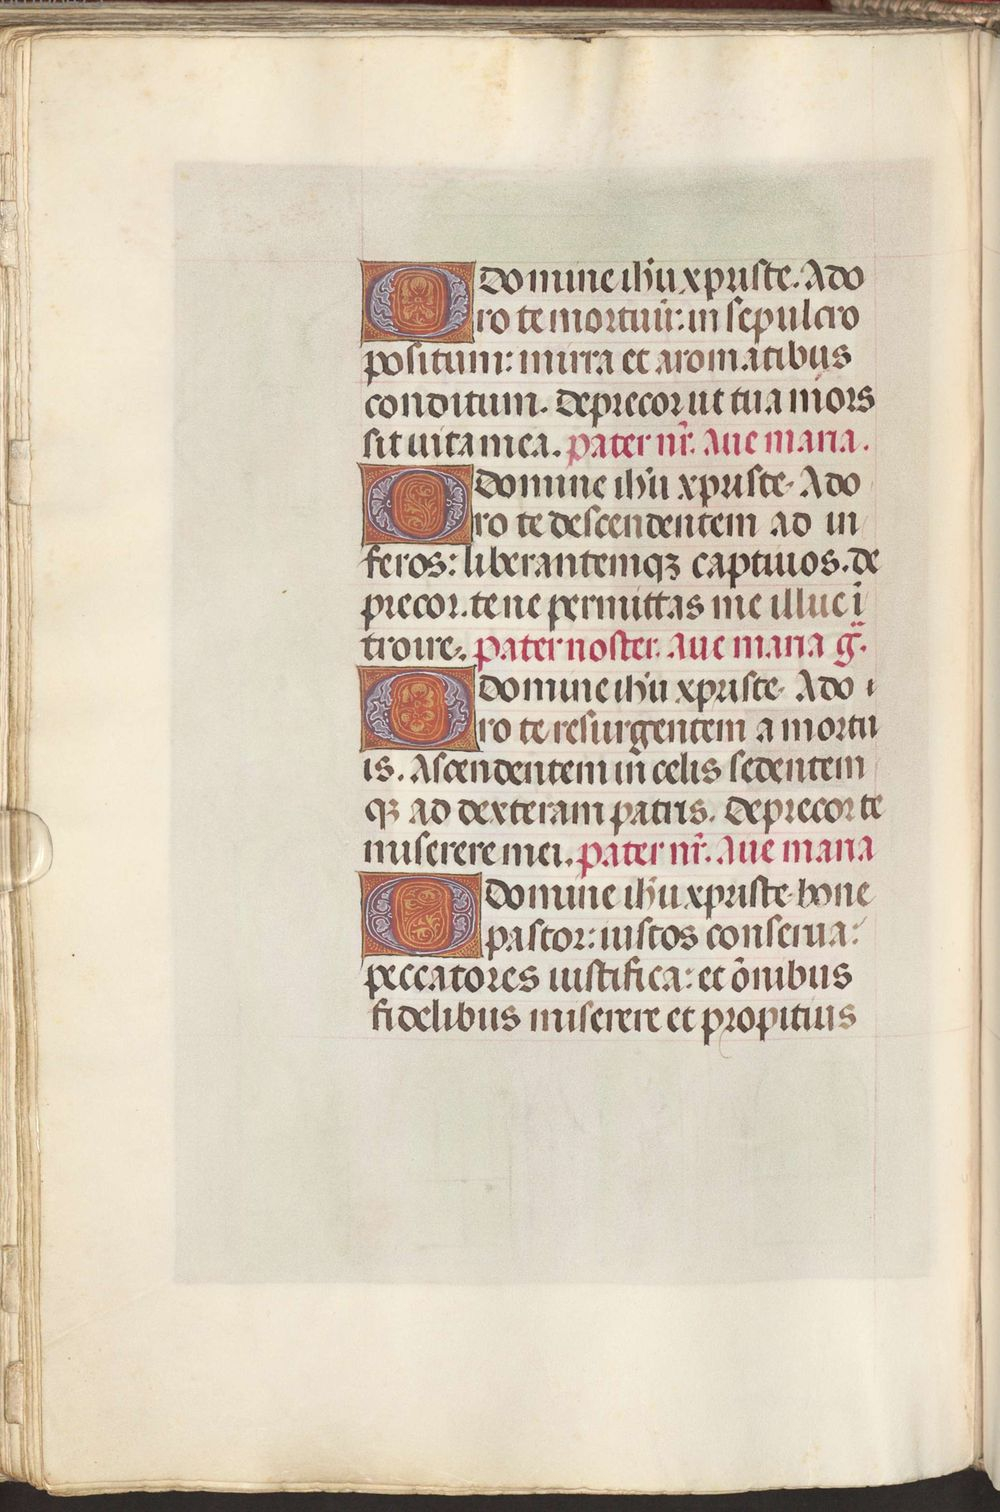 O Domine ihu xpriste. Ado
ro te mortuū: in sepulcro
positum: mirra et aromatibus
conditum. Deprecor ut tua mors
sit uita mea. pater nr̄. Aue maria.
O Domine ihu xpriste. Ado
ro te descendentem ad in
feros: liberantemqꝫ captiuos. de
precor. te ne permittas me illuc ī
troire. pater noster. Aue maria g̈.
O Domine ihu xpriste. Ado
ro te resurgentem a mortu
is. Ascendentem in celis sedentem
qꝫ ad dexteram patris. Deprecor te
miserere mei. pater nr̄. Aue maria
O Domine ihu xpriste bone
pastor: iustos conserua:
peccatores iustifica: et ōnibus
fidelibus miserere et propitius